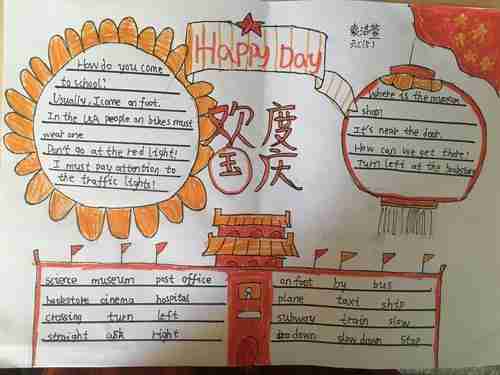 Happy Day
How do you come
to school?
Usually, I come on foot.
In the USA people on bikes must
wear one
Don't go at the red light!
I must pay attention to
the traffic lights!
欢度
国庆
Where is the museum
shop?
It's near the door.
How can we get there?
Turn left at the bookstore
science museum post office
bookstore cinema hospital
crossing turn left
straight ask right
on foot by bus
plane taxi ship
subway train slow
down slow down Stop